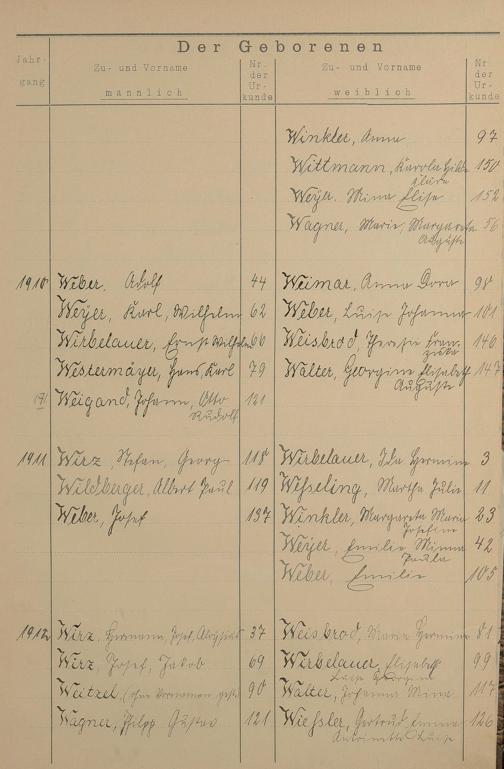 Der Geborenen
Jahr-
gang
Zu- und Vorname
männlich
Nr.
der
Ur-
kunde
Zu- und Vorname
weiblich
Nr.
der
Ur-
kunde
Winkler, Anna 97
Wittmann, Karola 150
Weyer, Mina Elise 152
Wagner, Marie, Margareta 56
Auguste
1910 Weber, Adolf 44 Weimar, Anna Dora 98
Weyer, Karl, Wilhelm 62 Weber, Luise Johanna 101
Wirbelauer, Ernst Wilhelm 66 Weisbrod, Therese Fran- 146
ziska
Westermayer, Hans, Karl 79 Walter, Georgine Elisabeth 147
Auguste
Weigand, Johann, Otto 121
Rudolf
1911 Wirz, Stefan, Georg 118 Wirbelauer, Ida Hermine 3
Wildberger, Albert Paul 119 Wesseling, Martha Julie 11
Weber, Josef 137 Winkler, Margareta Maria 23
Josefine
Weyer, Emilie Minna 42
Paula
Weber, Emilie 105
1912 Wirz, Hermann, Josef, Aloysius 37 Weisbrod, Maria Hermine 81
Wirz, Josef, Jakob 69 Wirbelauer, Elisabeth 99
Luise Georgine
Weitzel, (ohne Vornamen 90 Walter, Johanna Mina 117
Wagner, Philipp Gustav 121 Wiessler, Gertrud, Emma 126
Antoinette Luise